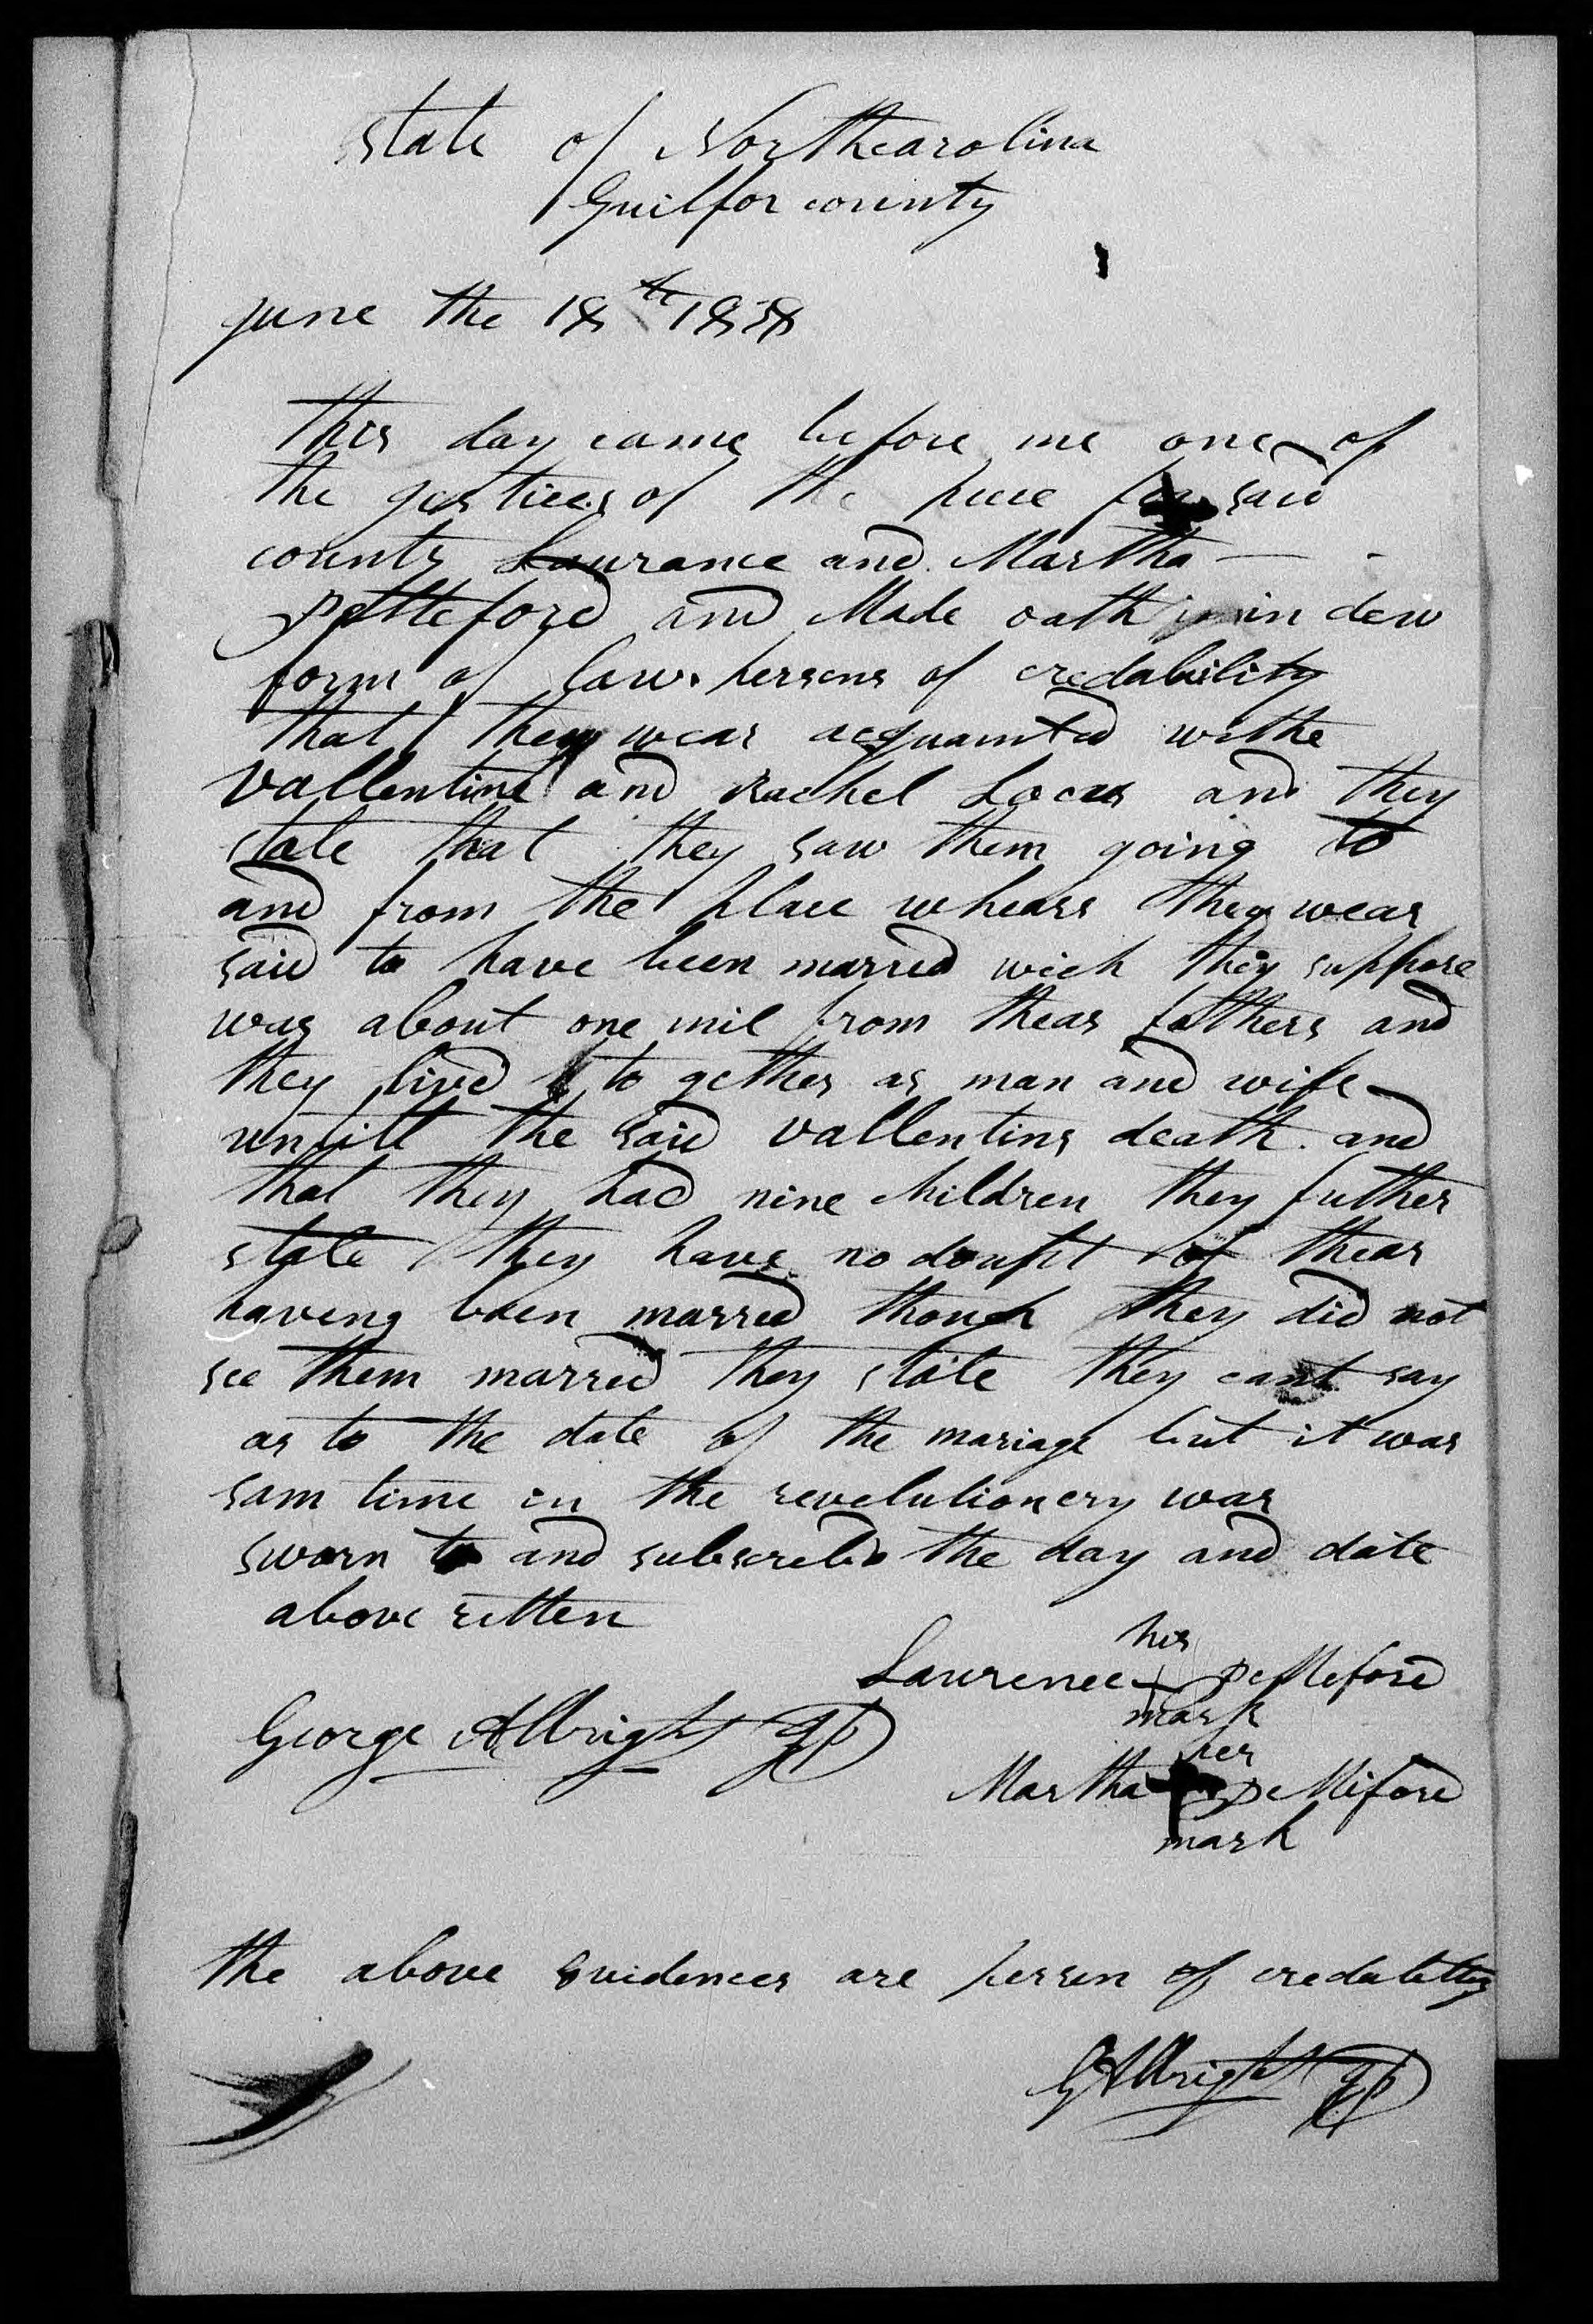 State of Northcarolina
Guilfor county
june the 18th 1838
this day came before me one of
the jestices of the peece for said
county Laurance and Martha
petteford and Made oath in dew
form of law persons of credability
that they wear acquainted withe
vallentine and Rachel Locus and they
state that they saw them going to
and from the place whears they wear
said to have been marred wich they suppose
was about one mil from thear fathers and
they lived to gether as man and wife
untill the said vallentins death and
that they had nine children they futher
state they have no doubt of thear
having been marred though they did not
see them marred they state they cant say
as to the date of the mariage but it was
sam time in the revelutionery war
sworn to and subscrebd the day and date
above ritten
his
Lawrence + petteford
mark
George Albright JP
her
Martha + pettiford
mark
the above evidences are person of credability
G Albright JP